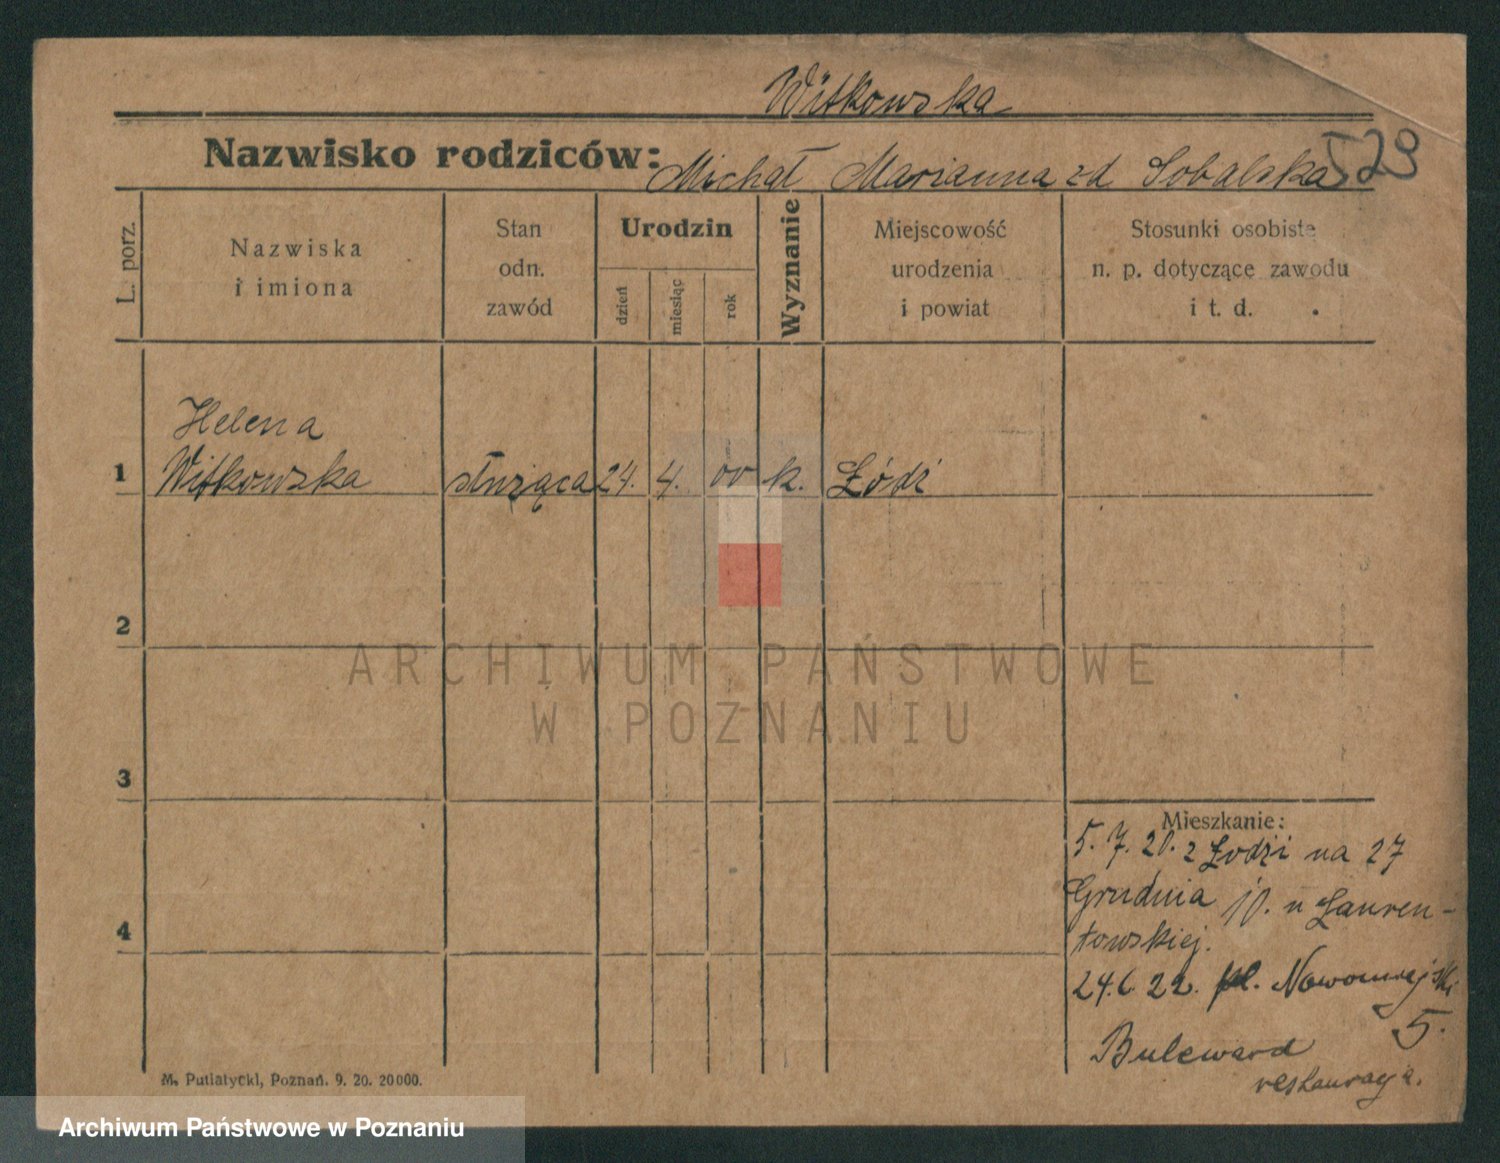 Witkowska
Nazwisko rodziców: Michał Marianna zd Sobalska 529
L. porz.
Nazwiska
i imiona
Stan
odn.
zawód
Urodzin
dzień
miesiąc
rok
Wyznanie
Miejscowość
urodzenia
i powiat
Stosunki osobiste
n. p. dotyczące zawodu
i t. d.
Helena
1 Witkowska służąca 24. 4. 00 k. Łódź
2
ARCHIWUM PAŃSTWOWE
W POZNANIU
3
Mieszkanie:
5. 7. 20. z Łodzi na 27
Grudnia 10. u Lauren-
towskiej.
4
24.6.22. pl. Nowomiejski
5.
Buleward
restauracja.
M. Putiatycki, Poznań. 9. 20. 20000.
Archiwum Państwowe w Poznaniu